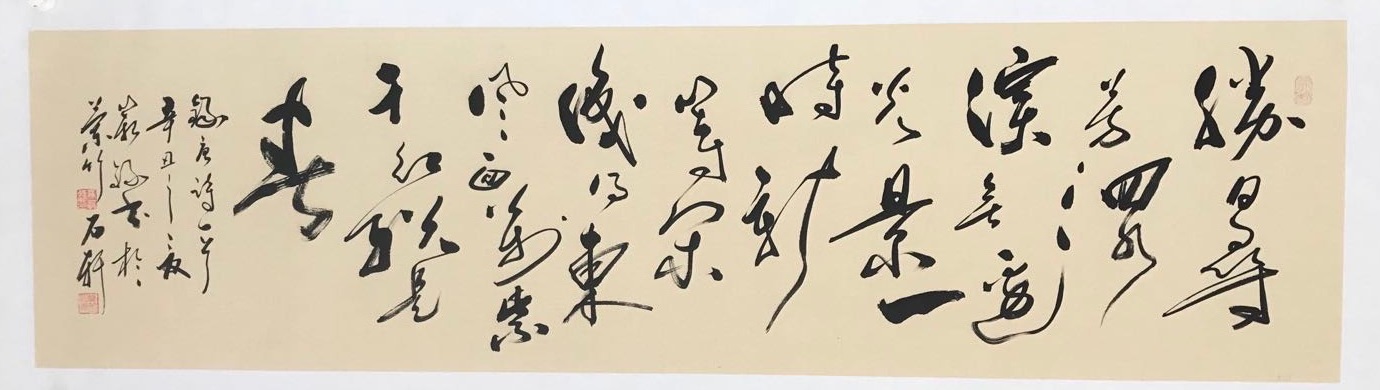 勝日尋
芳泗水
濱無邊
光景一
時新
等閑
識得東
風面萬紫
千紅總是
春
錄唐詩一首
辛丑之夏
書於
竹石軒